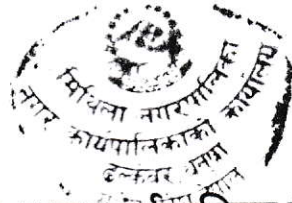 मिथिला नगरपालिका
नगर कार्यपालिकाको कार्यालय
ढल्केवर धनुषा